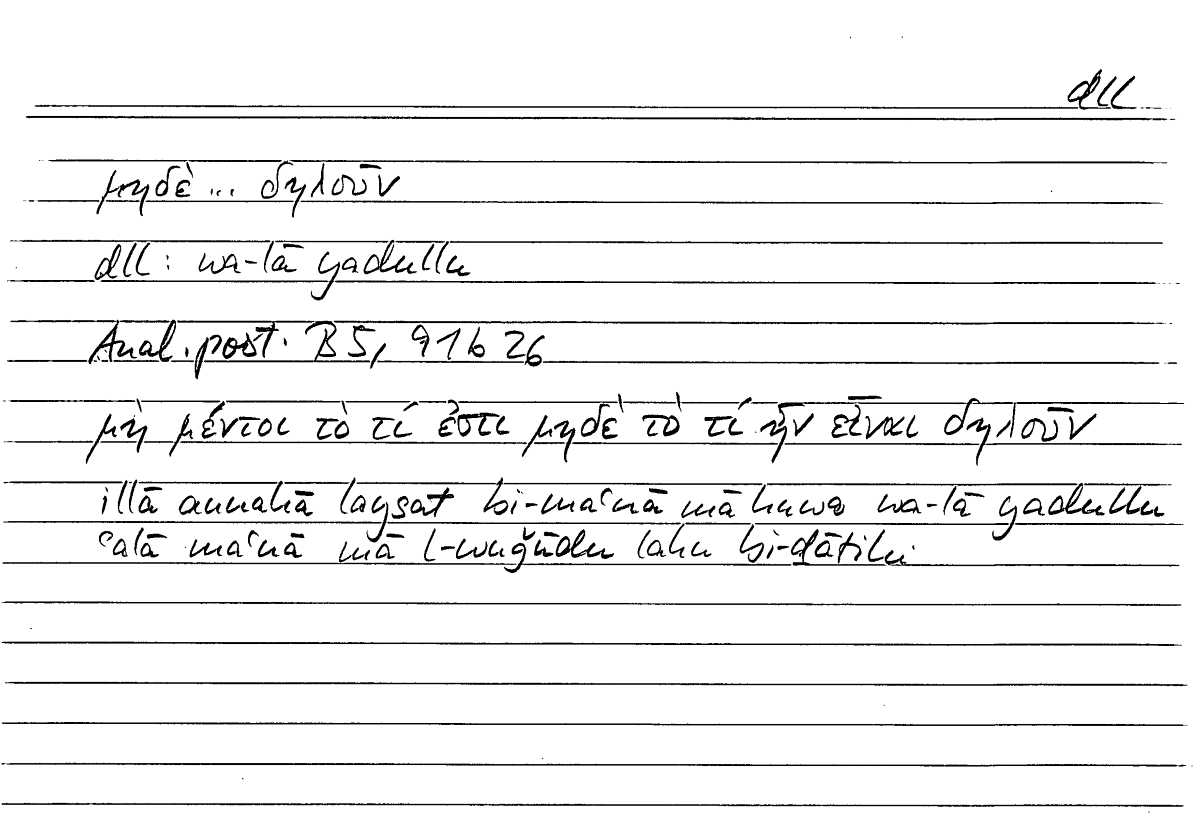 dll
μηδὲ ... δηλοῦν
dll: wa-lā yadullu
Anal. post. B 5, 91 b 26
μὴ μέντοι τὸ τί ἐστι μηδὲ τὸ τί ἦν εἶναι δηλοῦν
illā annahā laysat bi-maʿnā mā huwa wa-lā yadullu
ʿalā maʿnā mā l-wuǧūdu lahu bi-ḏātihi.